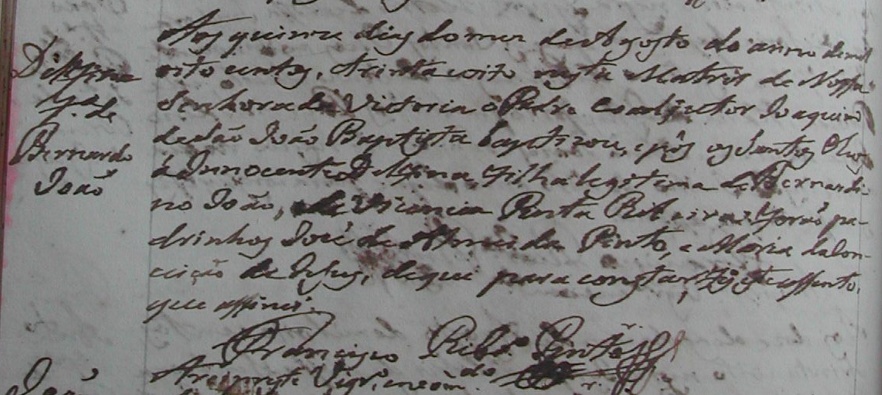 Aos quinze dias do mez de Agosto do anno de mil
Delfina
oito centos, e trinta e oito nesta Matris de Nossa
fª de
Senhora da Victoria o Padre Coadjuctor Joaquim
Bernardo
de São João Baptista baptizou, e pôs os Santos Oleos
João
á Innocente Delfina, filha legitima de Bernardi-
no João, e de Vicencia Penta Ribeira: forão pa-
drinhos José de Almeida Pinto, e Maria da Con-
ceição de Jesus, de que para constar fiz este assento,
que assinei.
Francisco Ribrº Pinto